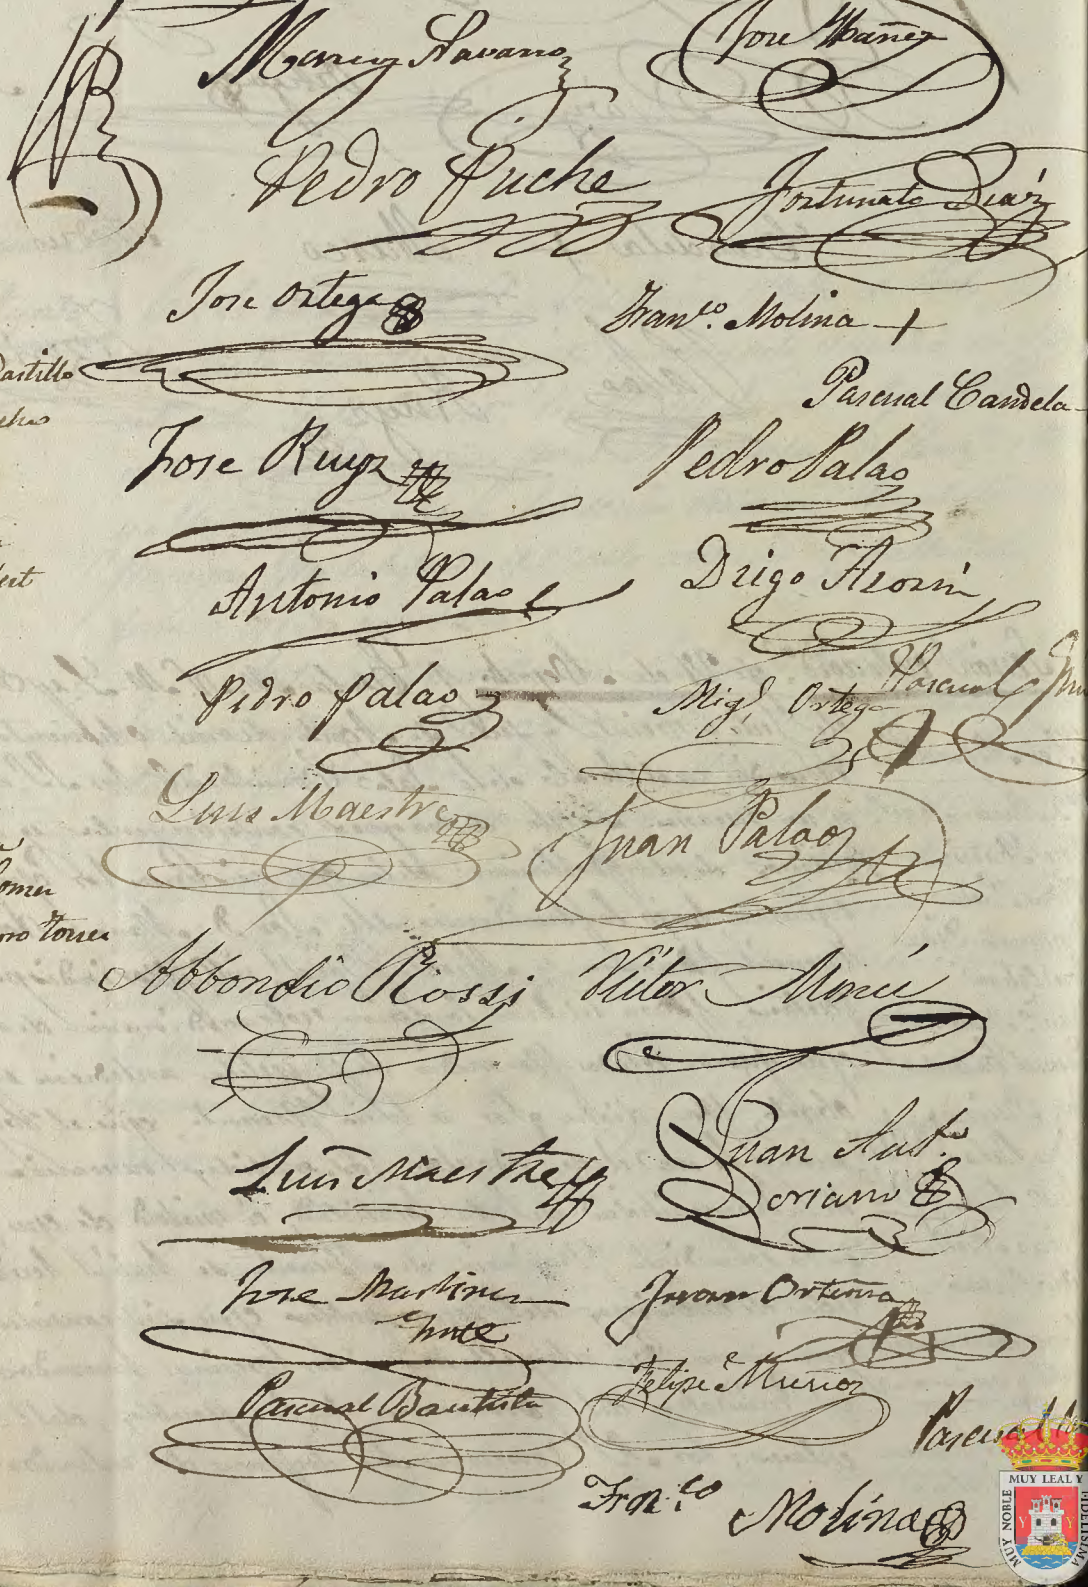 Navarro
Jose Ybañez
Pedro Puche
Fortunato Diaz
Jose Ortega
Fran.co Molina +
Castillo
Pascual Candela
Jose Ruyz
Pedro Palao
Antonio Palao
Diego Azorin
Pedro Palao
Mig.l Ortega
Pascual
Luis Maestre
Juan Palao
Abbondio Rossi
Vitor
Luis Maestre
Juan
Soriano
Jose Martinez
Juan Ortuño
Pascual Bautista
Felipe Muñoz
Pascual
Fran.co Molina
MUY NOBLE
MUY LEAL Y
FIDELISIMA
Y Y